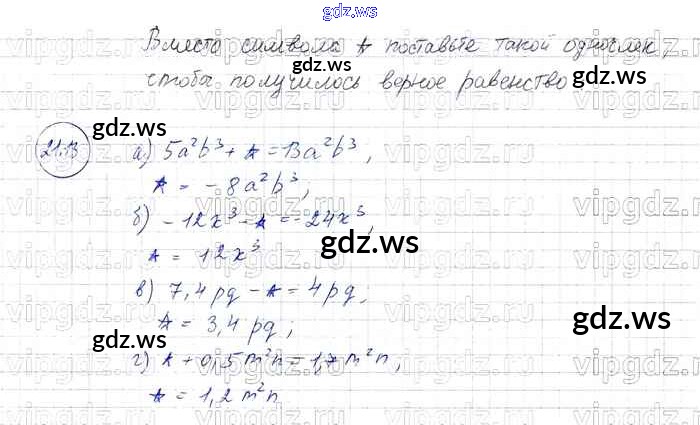 gdz.ws
Вместо символа * поставьте такой одночлен,
gdz.ws
чтобы получилось верное равенство
gdz.ws
21.13 а) 5a²b³ + * = 13a²b³,
gdz.ws
* = -8a²b³,
б) -12x³ - * = -24x³,
gdz.ws
* = 12x³
в) 7,4pq - * = 4pq;
* = 3,4pq;
gdz.ws
г) * + 0,5m²n = 1,7m²n,
* = 1,2m²n
gdz.ws